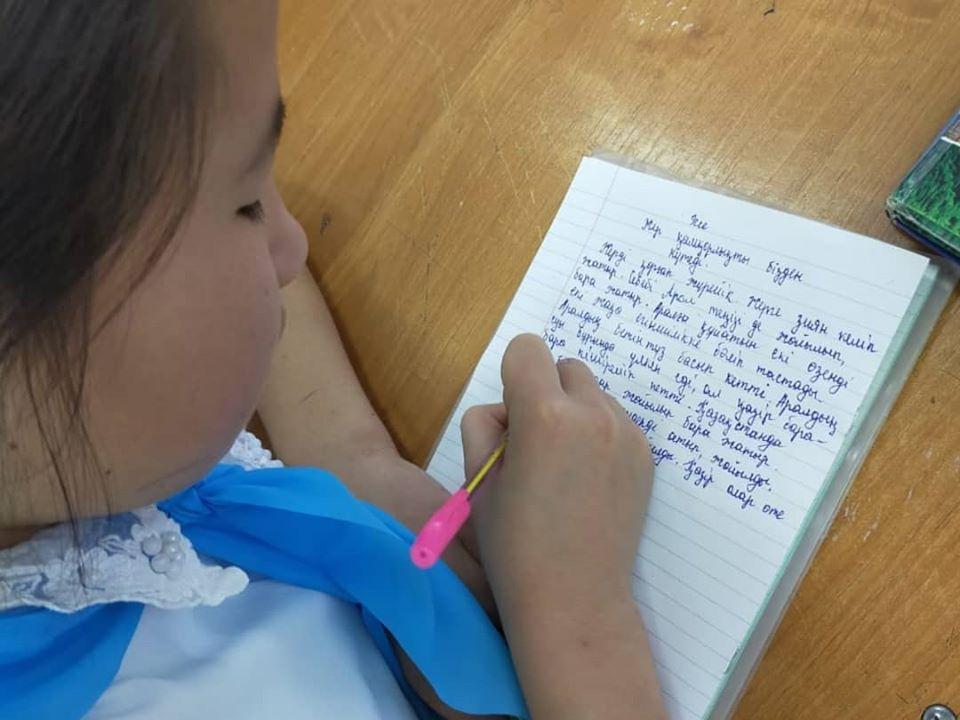 Эссе
Жер қамқорлықты бізден
күтеді.
Жерді қорғап жүрейік. Жерге зиян келіп
жатыр. Себебі Арал теңізі де жойылып,
бара жатыр. Аралға құятын екі өзенді
екі жаққа бөліп тастады
Аралдың бетін тұз басып кетті. Аралдың
суы бұрында үлкен еді, ол қазір бара-
бара кішірейіп кетті. Қазақстанда
жойылып бара жатыр.
атып, жойылды.
Қазір олар өте